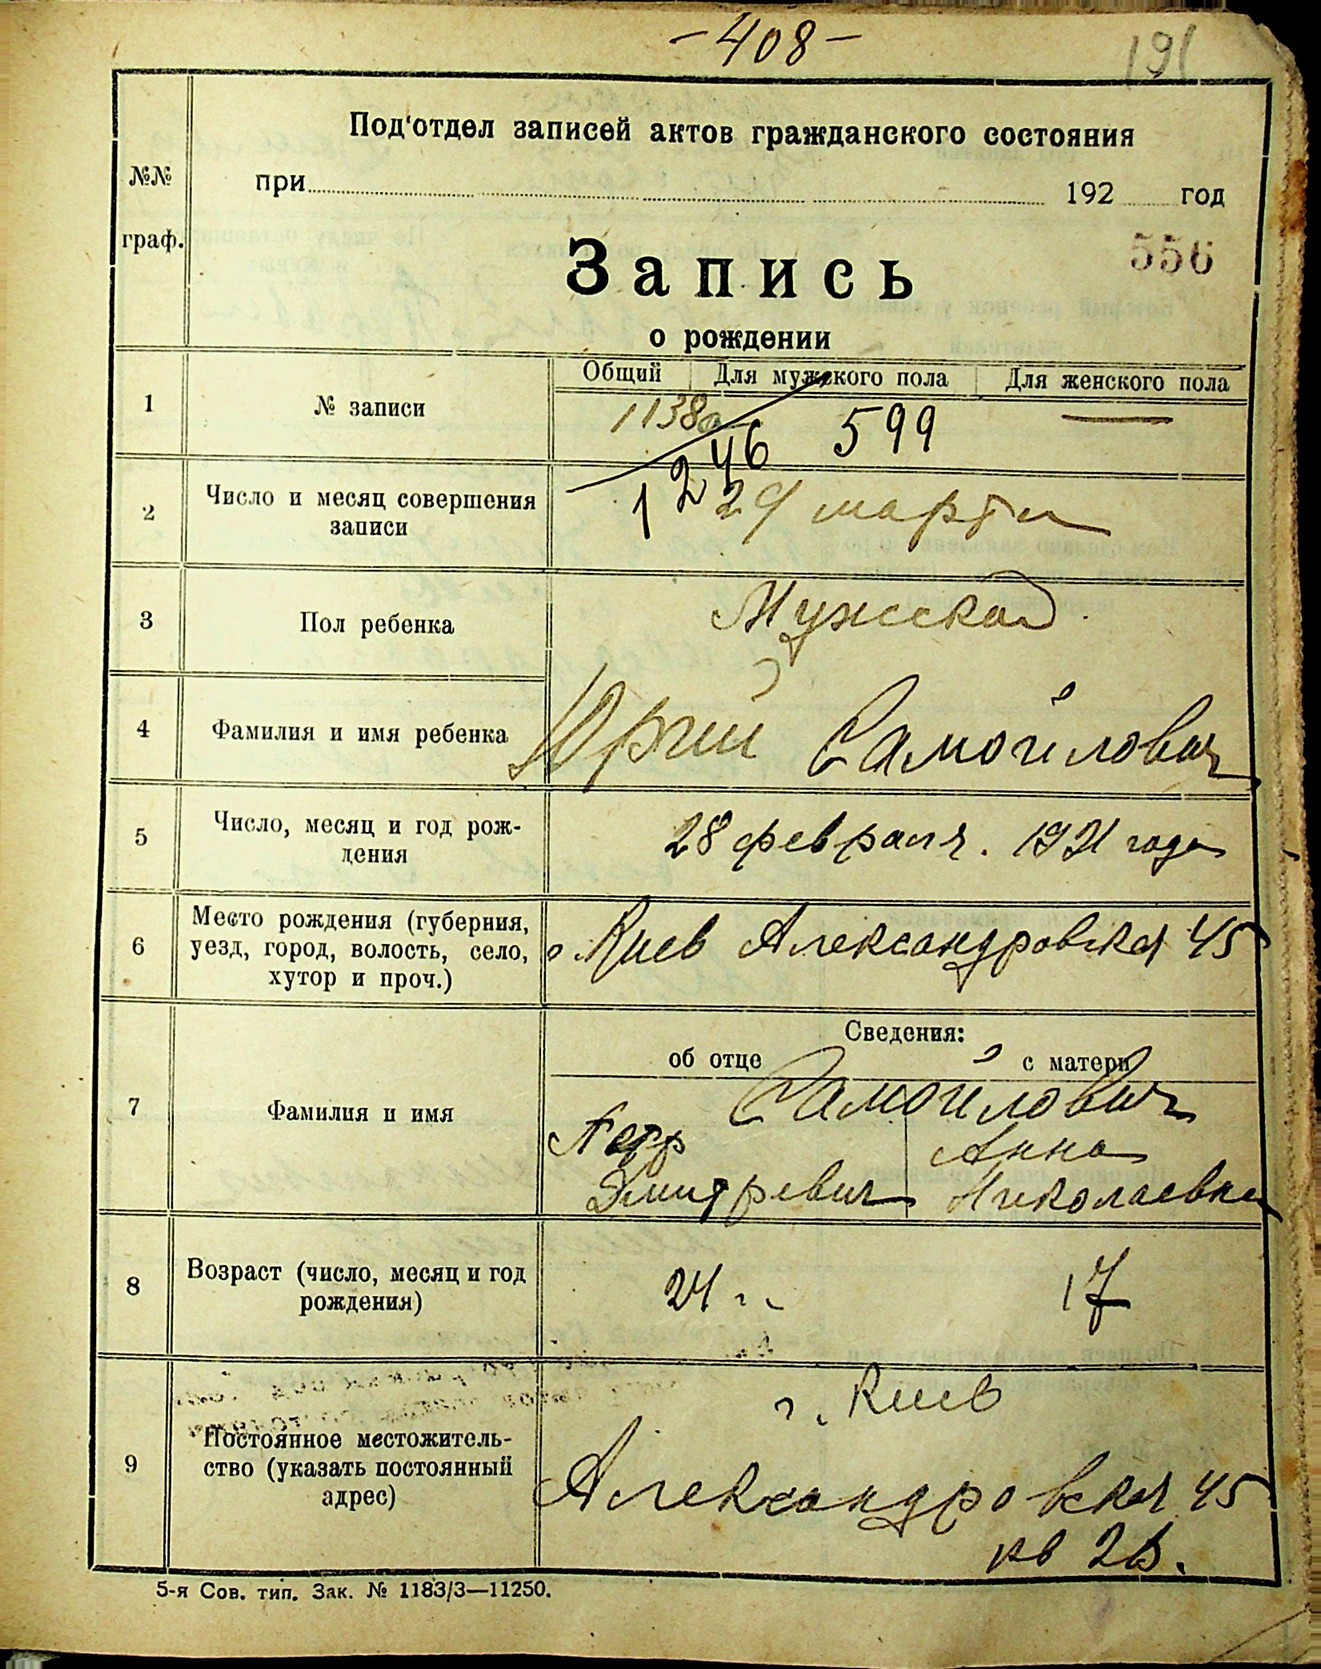 -408-
191
Под'отдел записей актов гражданского состояния
при 192 год
№№
граф.
556
Запись
о рождении
Общий Для мужского пола Для женского пола
1 № записи 1138а 599 —
1246
2 Число и месяц совершения
записи
29 марта
3 Пол ребенка Мужской
4 Фамилия и имя ребенка Юрий Самойлович
5 Число, месяц и год рож-
дения
28 февраля. 1921 года
6 Место рождения (губерния,
уезд, город, волость, село,
хутор и проч.)
Киев Александровская 45
Сведения:
об отце с матери
7 Фамилия и имя Самойлович
Петр Анна
Дмитревич Николаевна
8 Возраст (число, месяц и год
рождения)
24 17
9 Постоянное местожитель-
ство (указать постоянный
адрес)
г. Киев
Александровская 45
кв
5-я Сов. тип. Зак. № 1183/3—11250.